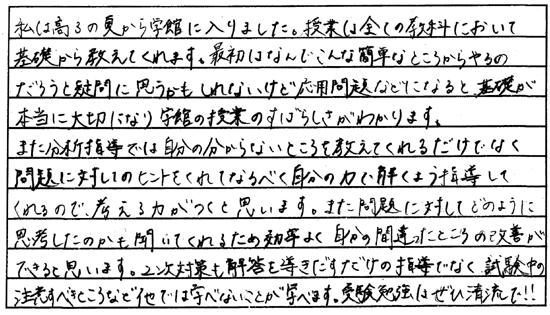 私は高3の夏から学館に入りました。授業は全ての教科において
基礎から教えてくれます。最初はなんでこんな簡単なところからやるの
だろうと疑問に思うかもしれないけど応用問題などになると基礎が
本当に大切になり学館の授業のすばらしさがわかります。
また分析指導では自分の分からないところを教えてくれるだけでなく
問題に対してのヒントをくれてなるべく自分の力で解くよう指導して
くれるので、考える力がつくと思います。また問題に対してどのように
思考したのかも聞いてくれるため効率よく自分の間違ったところの改善が
できると思います。2次対策も解答を導きだすだけの指導でなく試験中の
注意すべきところなど他では学べないことが学べます。受験勉強はぜひ清流で!!